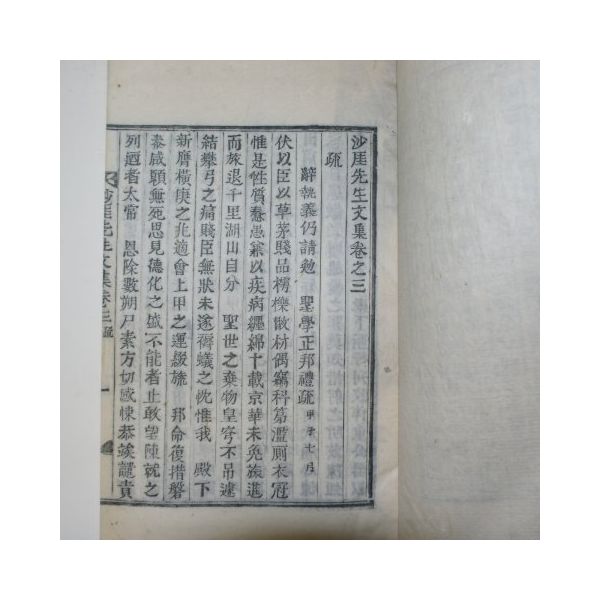 沙厓先生文集卷之三
疏
辭執義仍請勉 聖學正邦禮疏 甲子七月
伏以臣以草茅賤品樗櫟散材偶竊科第濫厠衣冠
惟是性質蠢愚兼以疾病纏綿十載京華未免旅進
而旅退千里湖山自分 聖世之棄物皇穹不吊遽
結攀弓之痛賤臣無狀未遂褥蟻之忱惟我 殿下
新膺橫庚之兆適會上甲之運綴旒 邦命復措磐
泰咸願無死思見德化之盛不能者止敢望陳就之
列迺者太常 恩除數朔尸素方切感悚恭竢譴責
沙厓先生文集卷三 疏 一